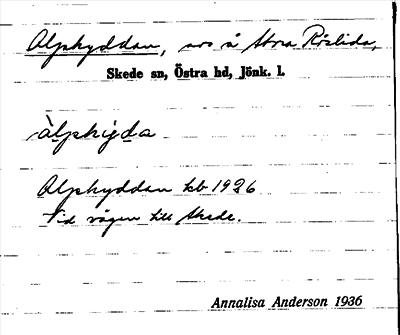 Alphyddan, avs å Stora Röslida,
Skede sn, Östra hd, Jönk. l.
àlphyda
Alphyddan kb 1926
Vid vägen till Skede.
Annalisa Anderson 1936